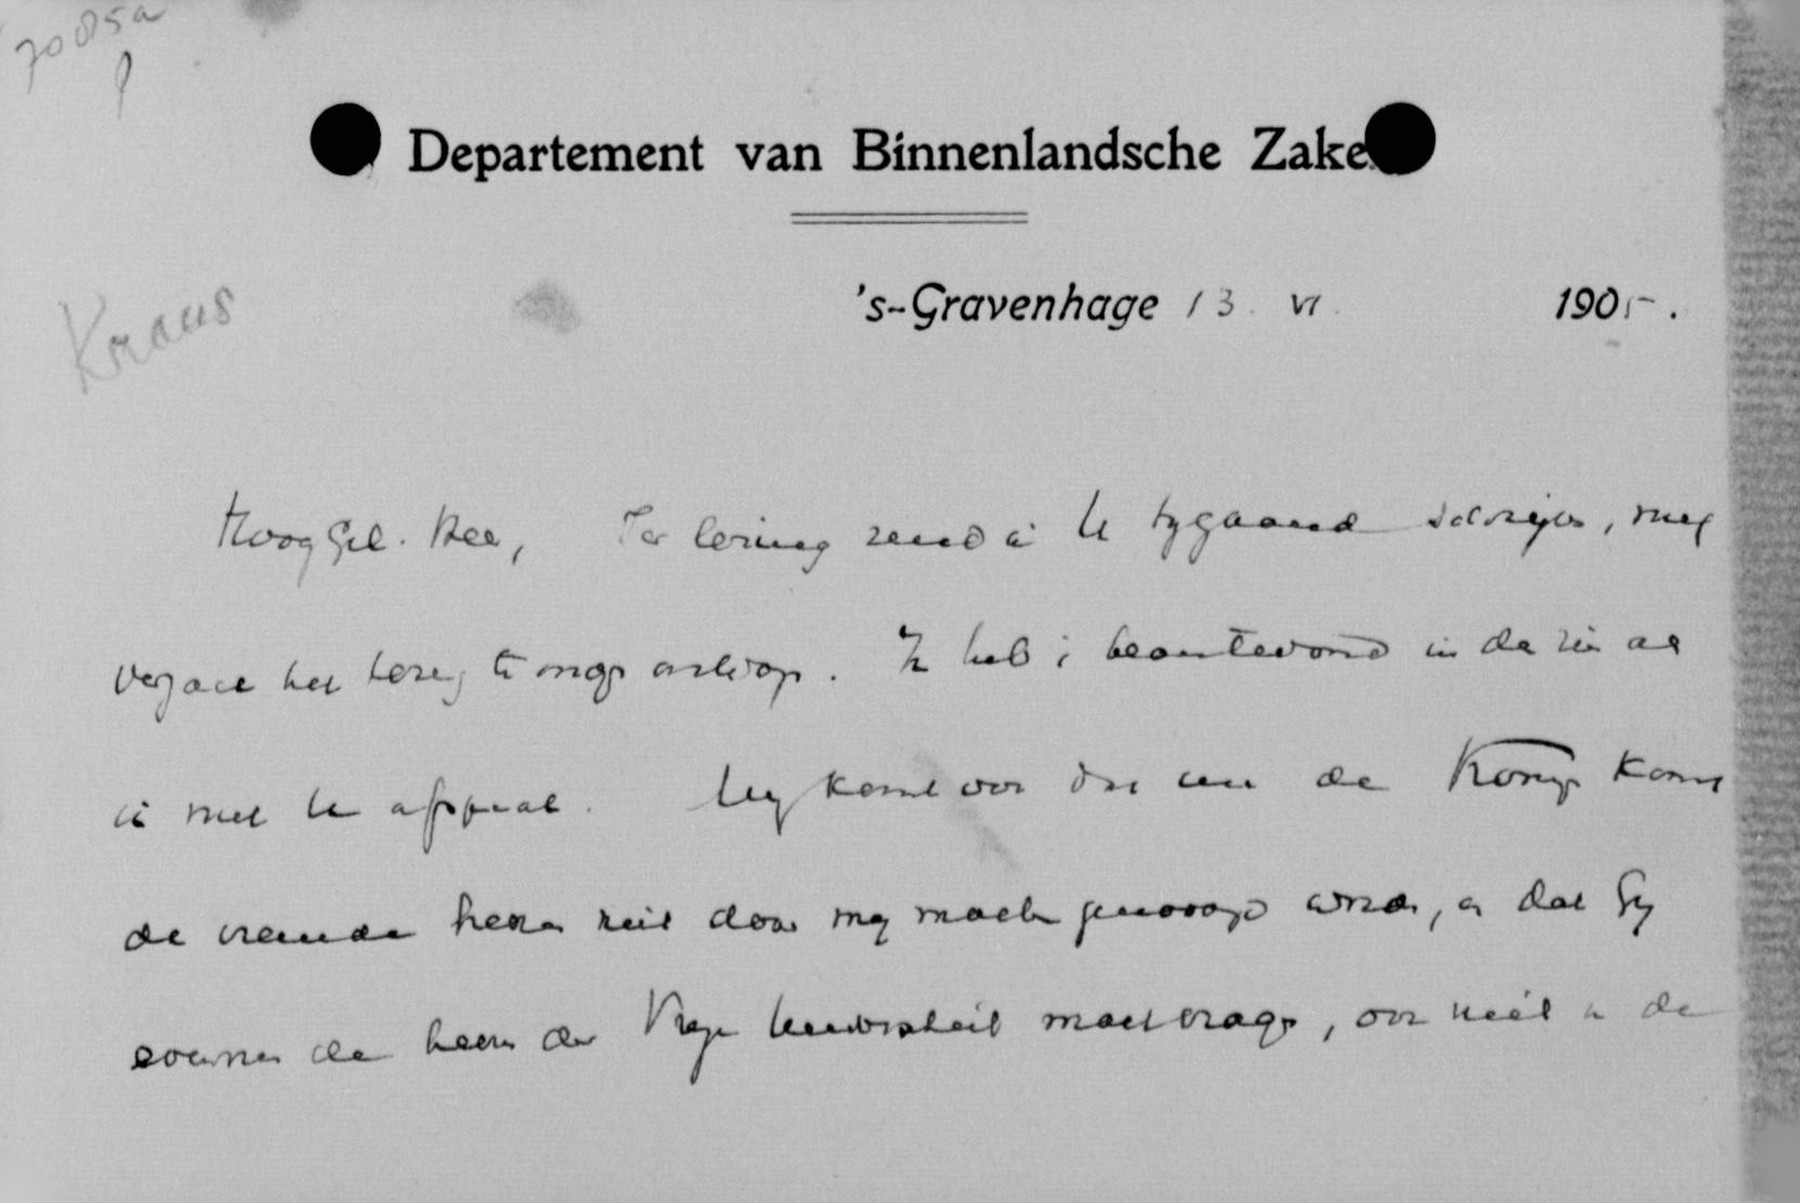 70085a
Departement van Binnenlandsche Zake
's-Gravenhage 13. VI. 1905.
Kraus
HoogGel. Heer, Ter lezing zend ik U bijgaand schrijven, mij
het terug te mogen ontvangen. Ik heb beantwoord in de zin als
ik met U afsprak. Mij komt voor dat nu de Koning komt
de vreemde heeren niet door mij moeten genoodigd worden, en dat Gij
evenmin de heeren der Vrije Universiteit moet vragen, niet de